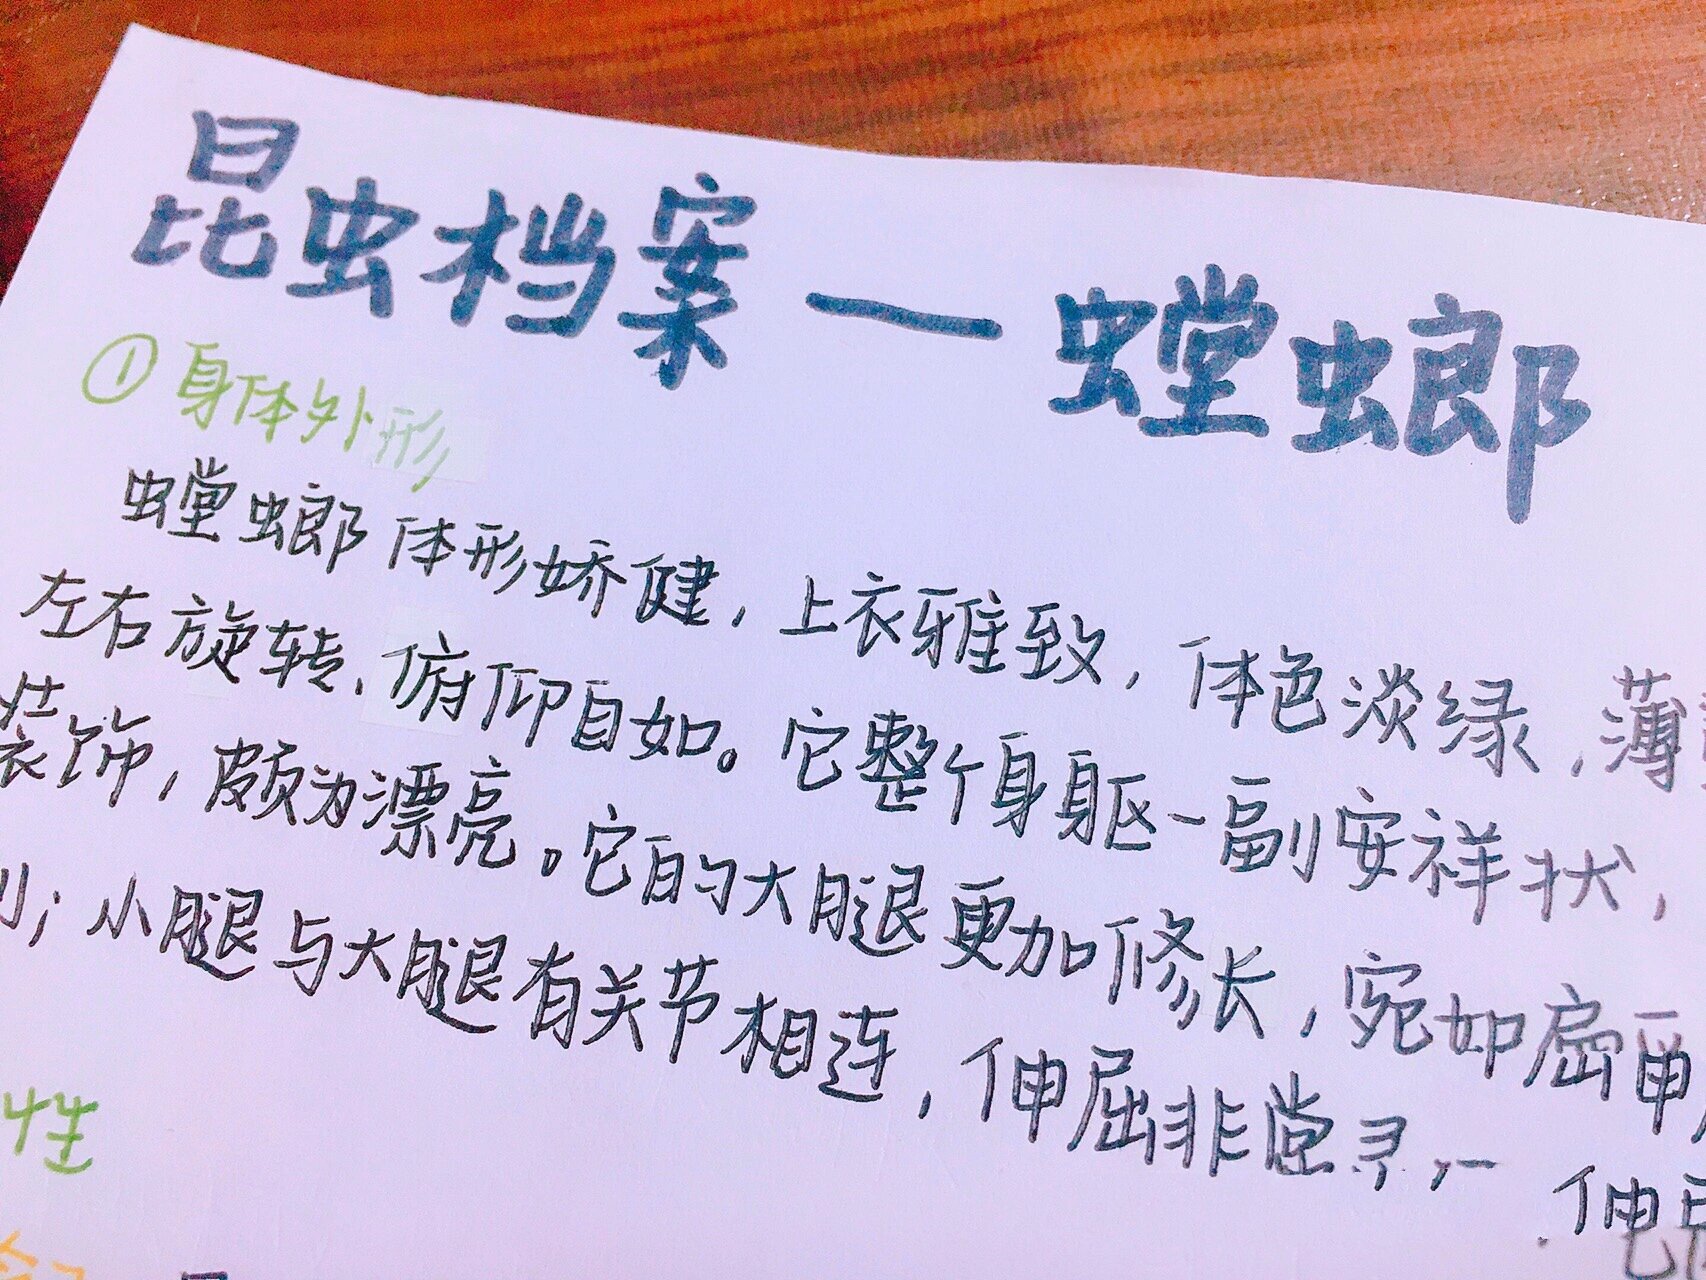 昆虫档案—螳螂
①身体外形
螳螂体形娇健，上衣雅致，体色淡绿，薄
左右旋转、俯仰自如。它整个身躯一副安祥状，
装饰，颇为漂亮。它的大腿更加修长，宛如扁
；小腿与大腿有关节相连，伸屈非常
性